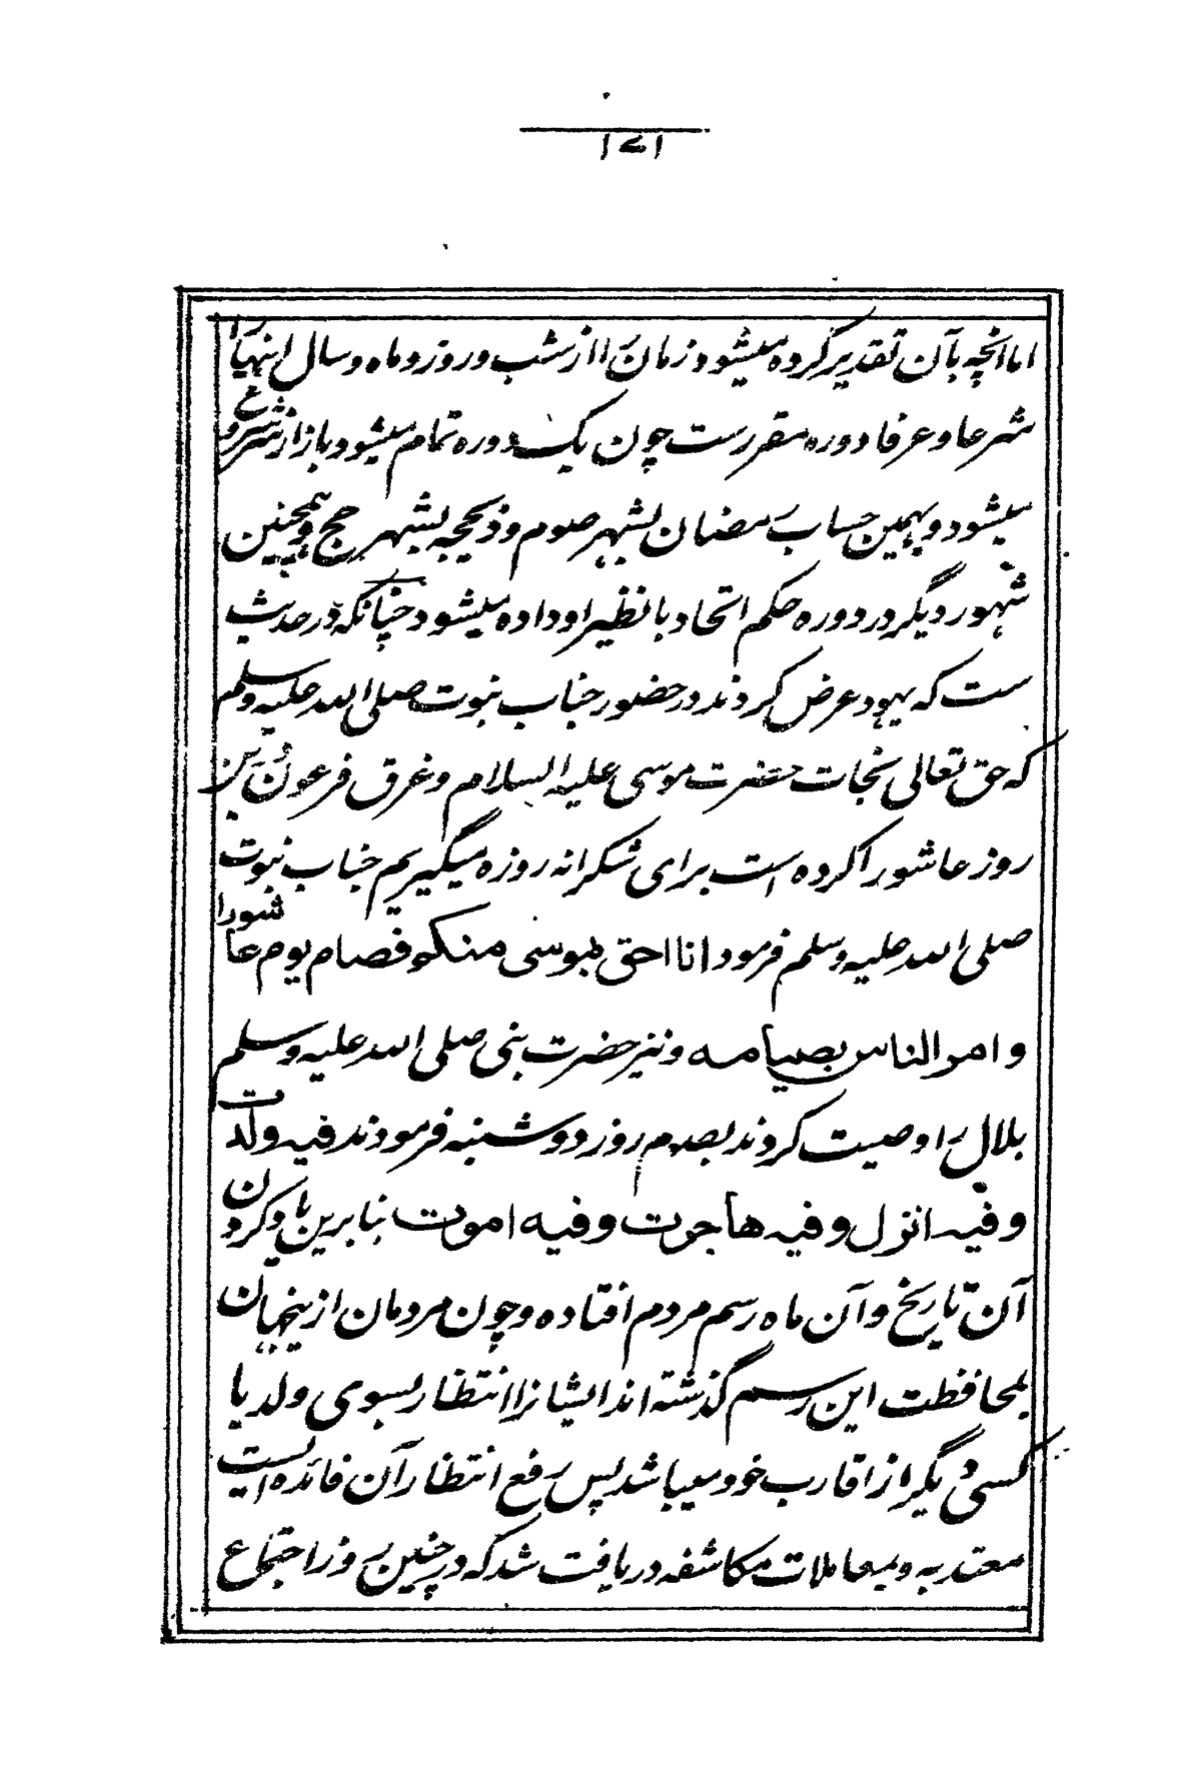 ۱۷۱
اما انچه بآن تقدیر کرده میشود زمان را از شب و روز و ماه و سال اینها را
شرعا و عرفا دوره مقررست چون یک دوره تمام میشود باز از سر شروع
میشود و بهمین حساب رمضان بشهر صوم و ذیحجه بشهر حج و همچنین
شهور دیگر در دوره حکم اتحاد بانظیر او داده میشود چنانکه در حدیث
ست که یهود عرض کردند در حضور جناب نبوت صلی الله علیه وسلم
که حق تعالی نجات حضرت موسی علیه السلام و غرق فرعون درین
روز عاشورا کرده است برای شکرانه روزه میگیریم جناب نبوت
صلی الله علیه وسلم فرمود انا احق بموسی منکم فصام یوم عاشورا
و امر الناس بصیامه و نیز حضرت نبی صلی الله علیه وسلم
بلال را وصیت کردند بصوم روز دوشنبه فرمودند فیه ولدت
و فیه انزل و فیه هاجرت و فیه اموت بنابرین یاد کردن
آن تاریخ و آن ماه رسم مردم افتاده و چون مردمان ازینجهان
بمحافظت این رسم گذشته اند ایشانرا انتظار بسوی ولد یا
کسی دیگر از اقارب خود میباشد پس رفع انتظار آن فائده ایست
معتد به و بمعاملات مکاشفه دریافت شد که در چنین روز اجتماع